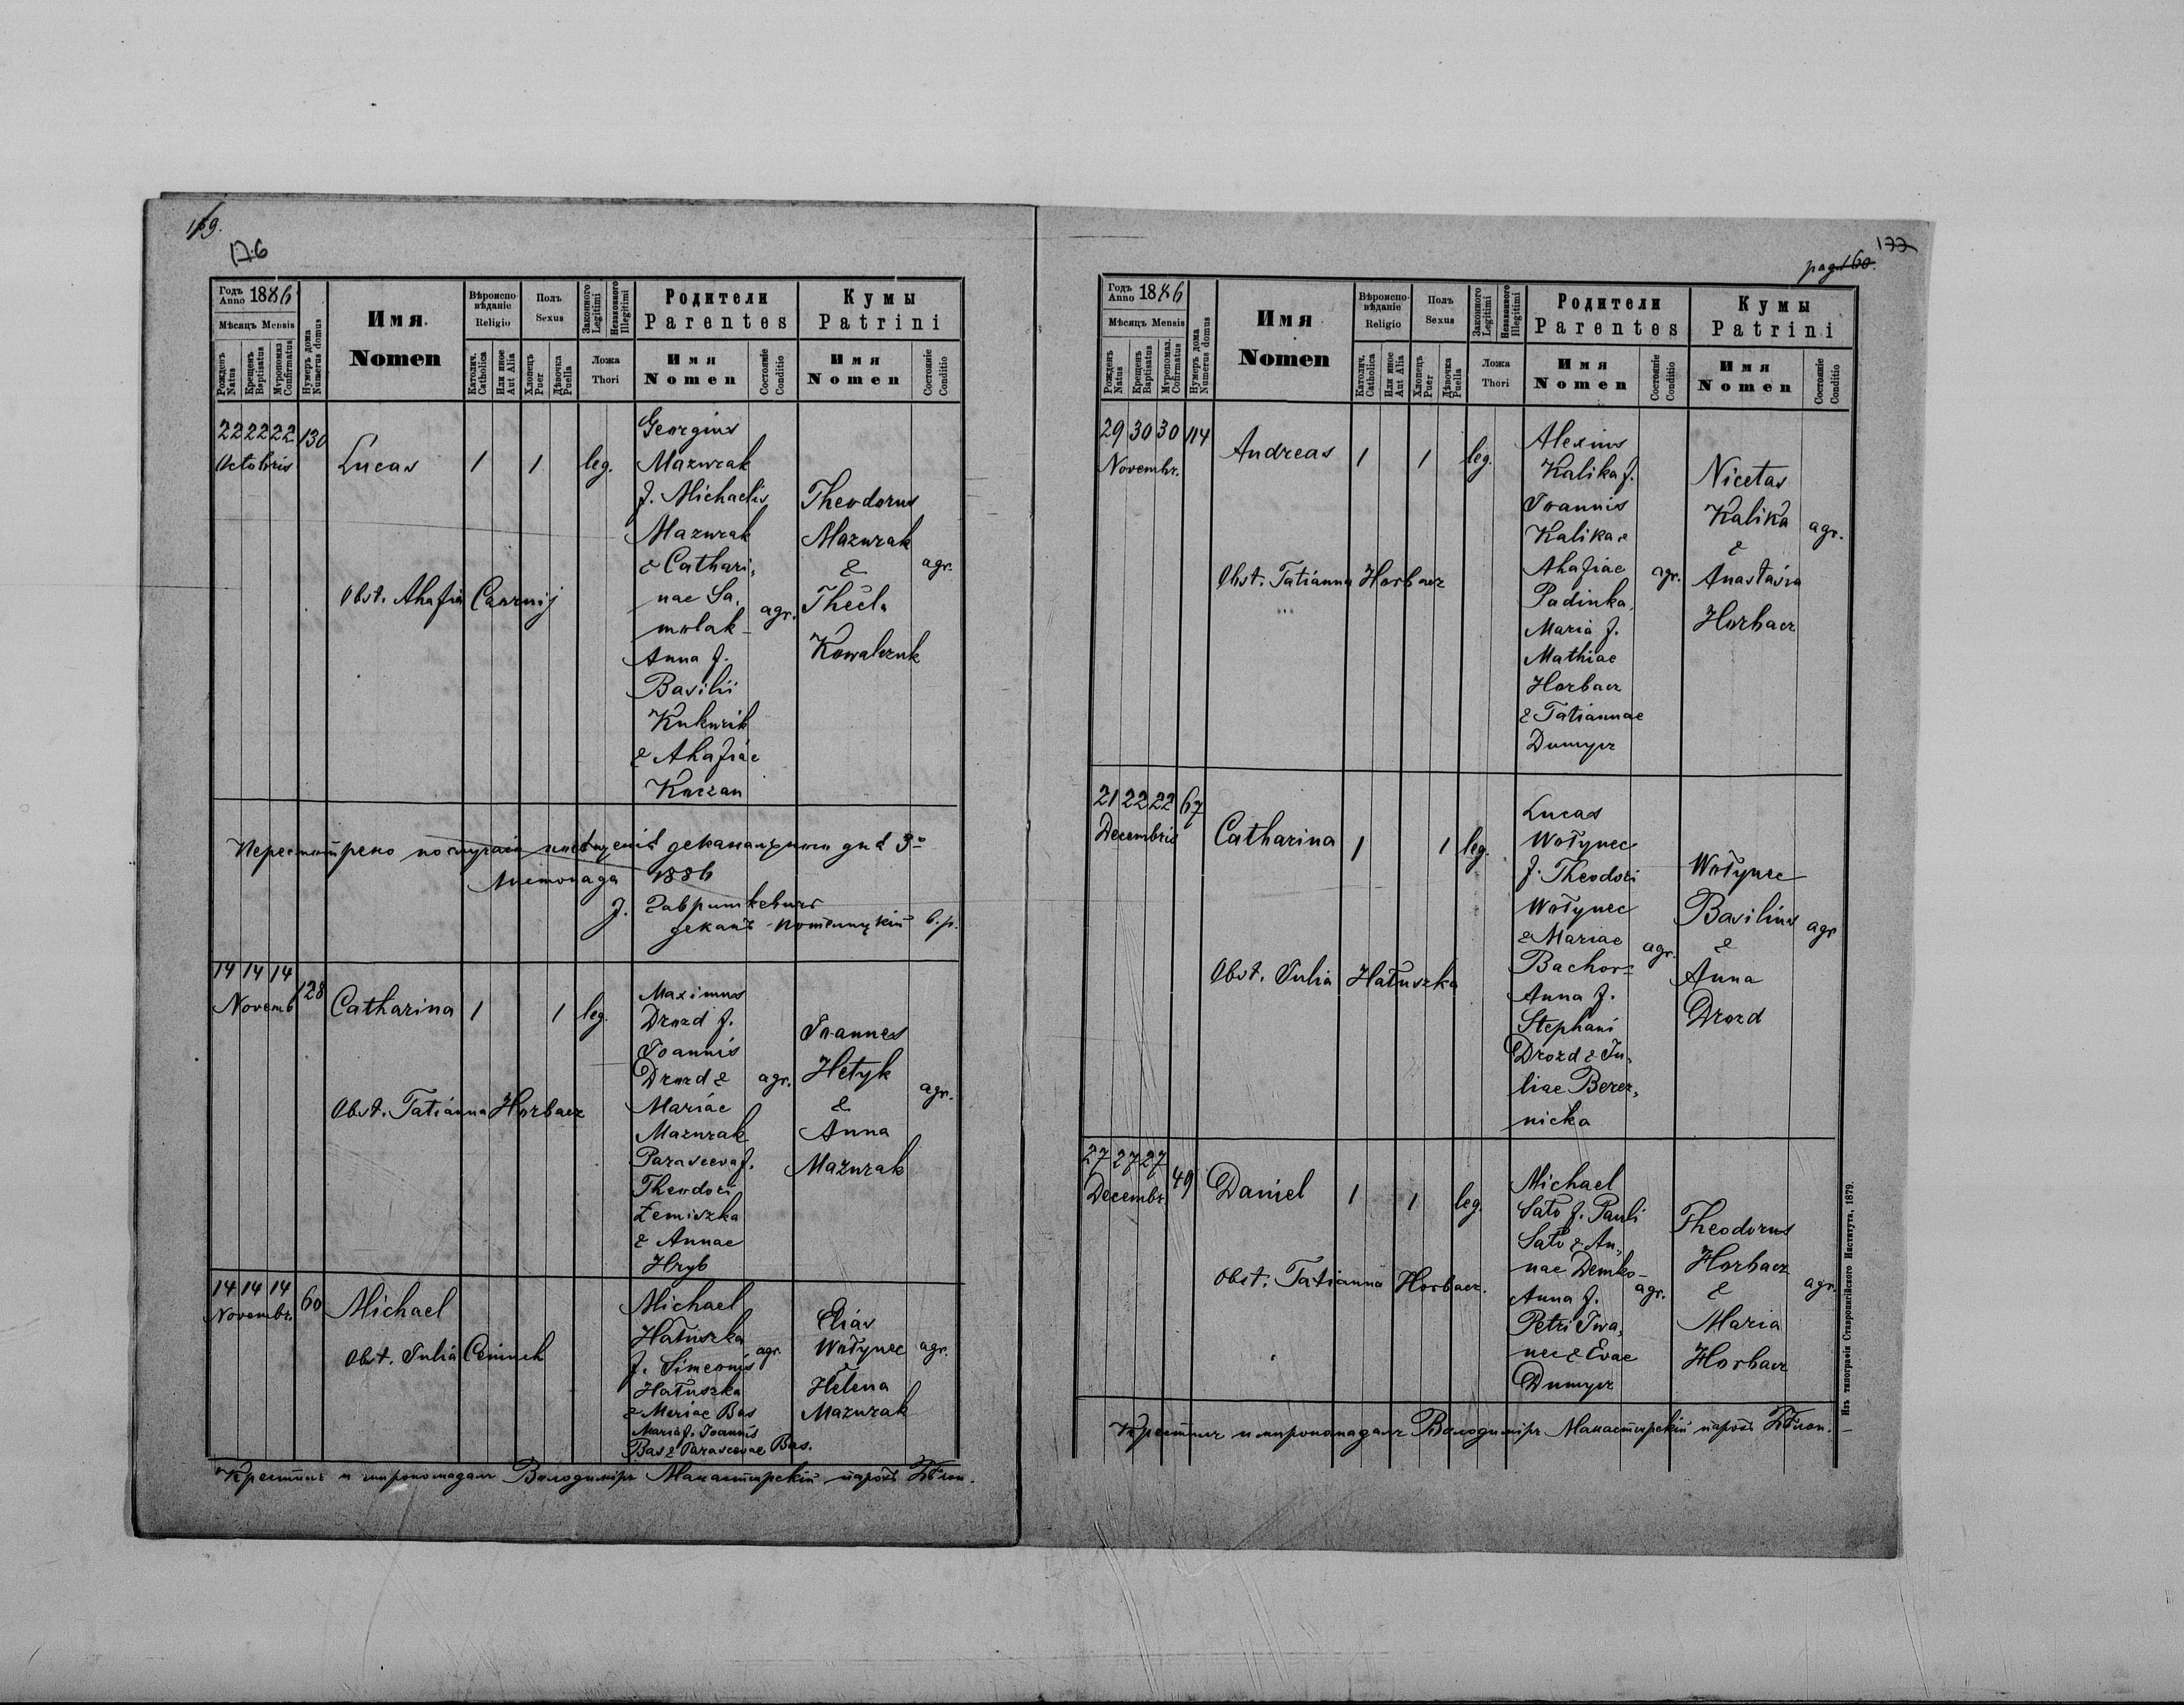 159.
176
Годъ Anno 1886
Мѣсяцъ Mensis
Рожденъ Natus
Крещенъ Baptisatus
Мѵропомаз. Confirmatus
Нумеръ дома Numerus domus
Имя
Nomen
Вѣроиспо-вѣданіе
Religio
Католич. Catholica
Или иное Aut Alia
Полъ
Sexus
Хлопецъ Puer
Дѣвочка Puella
Законного Legitimi
Незаконного Illegitimi
Ложа
Thori
Родители
Parentes
Имя
Nomen
Состояніе Conditio
Кумы
Patrini
Имя
Nomen
Состояніе Conditio
22 22 22 130
Octobris
Lucas 1 1 leg.
Obst. Ahafia Czornij
Georgius
Mazurak
f. Michaelis
Mazurak
& Cathari,
nae Sa,
molak-
Anna f.
Basilii
Kukurik
& Ahafiae
Kaczan
agr.
Theodorus
Mazurak
&
Thecla
Kowalczuk
agr.
1886
14 14 14 128
Novemb
Catharina 1 1 leg.
Obst. Tatianna Horbacz
Maximus
Drozd f.
Joannis
Drozd &
Mariae
Mazurak
Parasceva f.
Theodori
Zemiszka
& Annae
Hryb
agr.
Joannes
Hetyk
&
Anna
Mazurak
agr.
14 14 14 60
Novembr.
Michael
Obst. Julia
Michael
Hałuszka
f. Simeonis
Hałuszka
& Mariae Bas
Maria f. Joannis
Bas & Parascevae Bas.
agr.
Elias
Wołynec
Helena
Mazurak
agr.
Крестилъ и миропомазалъ Володимiръ Манастирскій парохъ
177
pag. 160.
Годъ Anno 1886
Мѣсяцъ Mensis
Рожденъ Natus
Крещенъ Baptisatus
Мѵропомаз. Confirmatus
Нумеръ дома Numerus domus
Имя
Nomen
Вѣроиспо-вѣданіе
Religio
Католич. Catholica
Или иное Aut Alia
Полъ
Sexus
Хлопецъ Puer
Дѣвочка Puella
Законного Legitimi
Незаконного Illegitimi
Ложа
Thori
Родители
Parentes
Имя
Nomen
Состояніе Conditio
Кумы
Patrini
Имя
Nomen
Состояніе Conditio
29 30 30 114
Novembr.
Andreas 1 1 leg.
Obst. Tatianna Horbacz
Alexius
Kalika f.
Joannis
Kalika &
Ahafiae
Padinka,
Maria f.
Mathiae
Horbacz
& Tatiannae
Dumycz
agr.
Nicetas
Kalika
&
Anastasia
Horbacz
agr.
21 22 22 67
Decembris
Catharina 1 1 leg.
Obst. Julia Hałuszka
Lucas
Wołynec
f. Theodori
Wołynec
& Mariae
Bachor=
Anna f.
Stephani
Drozd & Ju,
liae Berez,
nicka
agr.
Wołynec
Basilius
&
Anna
Drozd
agr
27 27 27 49
Decembr.
Daniel 1 1 leg.
Obst. Tatianna Horbacz.
Michael
Sato f. Pauli
Sato & An,
nae Demko-
Anna f.
Petri Iwa,
nec & Evae
Dumycz
agr.
Theodorus
Horbacz
&
Maria
Horbacz
agr.
Крестилъ и миропомазалъ Володимiръ Манастирскій парохъ
Изъ типографіи Ставропигійского Института, 1879.